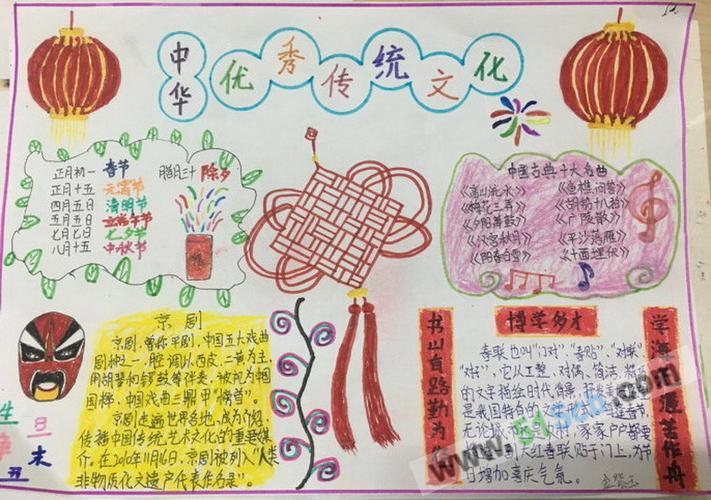 中华
优秀传统文化
正月初一 春节
正月十五 元宵节
四月五日 清明节
五月五日 端午节
七月七日 七夕节
八月十五 中秋节
腊月三十 除夕
中国古典十大名曲
《高山流水》《渔樵问答》
《梅花三弄》《胡笳十八拍》
《夕阳萧鼓》《广陵散》
《汉宫秋月》《平沙落雁》
《阳春白雪》《十面埋伏》
京剧
京剧,曾称平剧,中国五大戏曲
剧种之一,腔调以西皮、二黄为主,
用胡琴和锣鼓等伴奏,被视为中国
国粹,中国戏曲三鼎甲"榜首"。
京剧走遍世界各地,成为介绍、
传播中国传统艺术文化的重要媒
介。在2010年11月16日,京剧被列入"人类
非物质化文遗产代表作名录"。
生旦
净末
丑
书山有路勤为
博学多才
学海 涯苦作舟
春联也叫"门对"、"春贴"、"对联"
"对",它以工整、对偶、简洁、精巧
的文字描绘时代背景,
是我国特有的 学形式。 逢春节,
无论城市 农村,家家户户都要
大红春联贴于门上,为节
日增加喜庆气氛。
www.51 .com